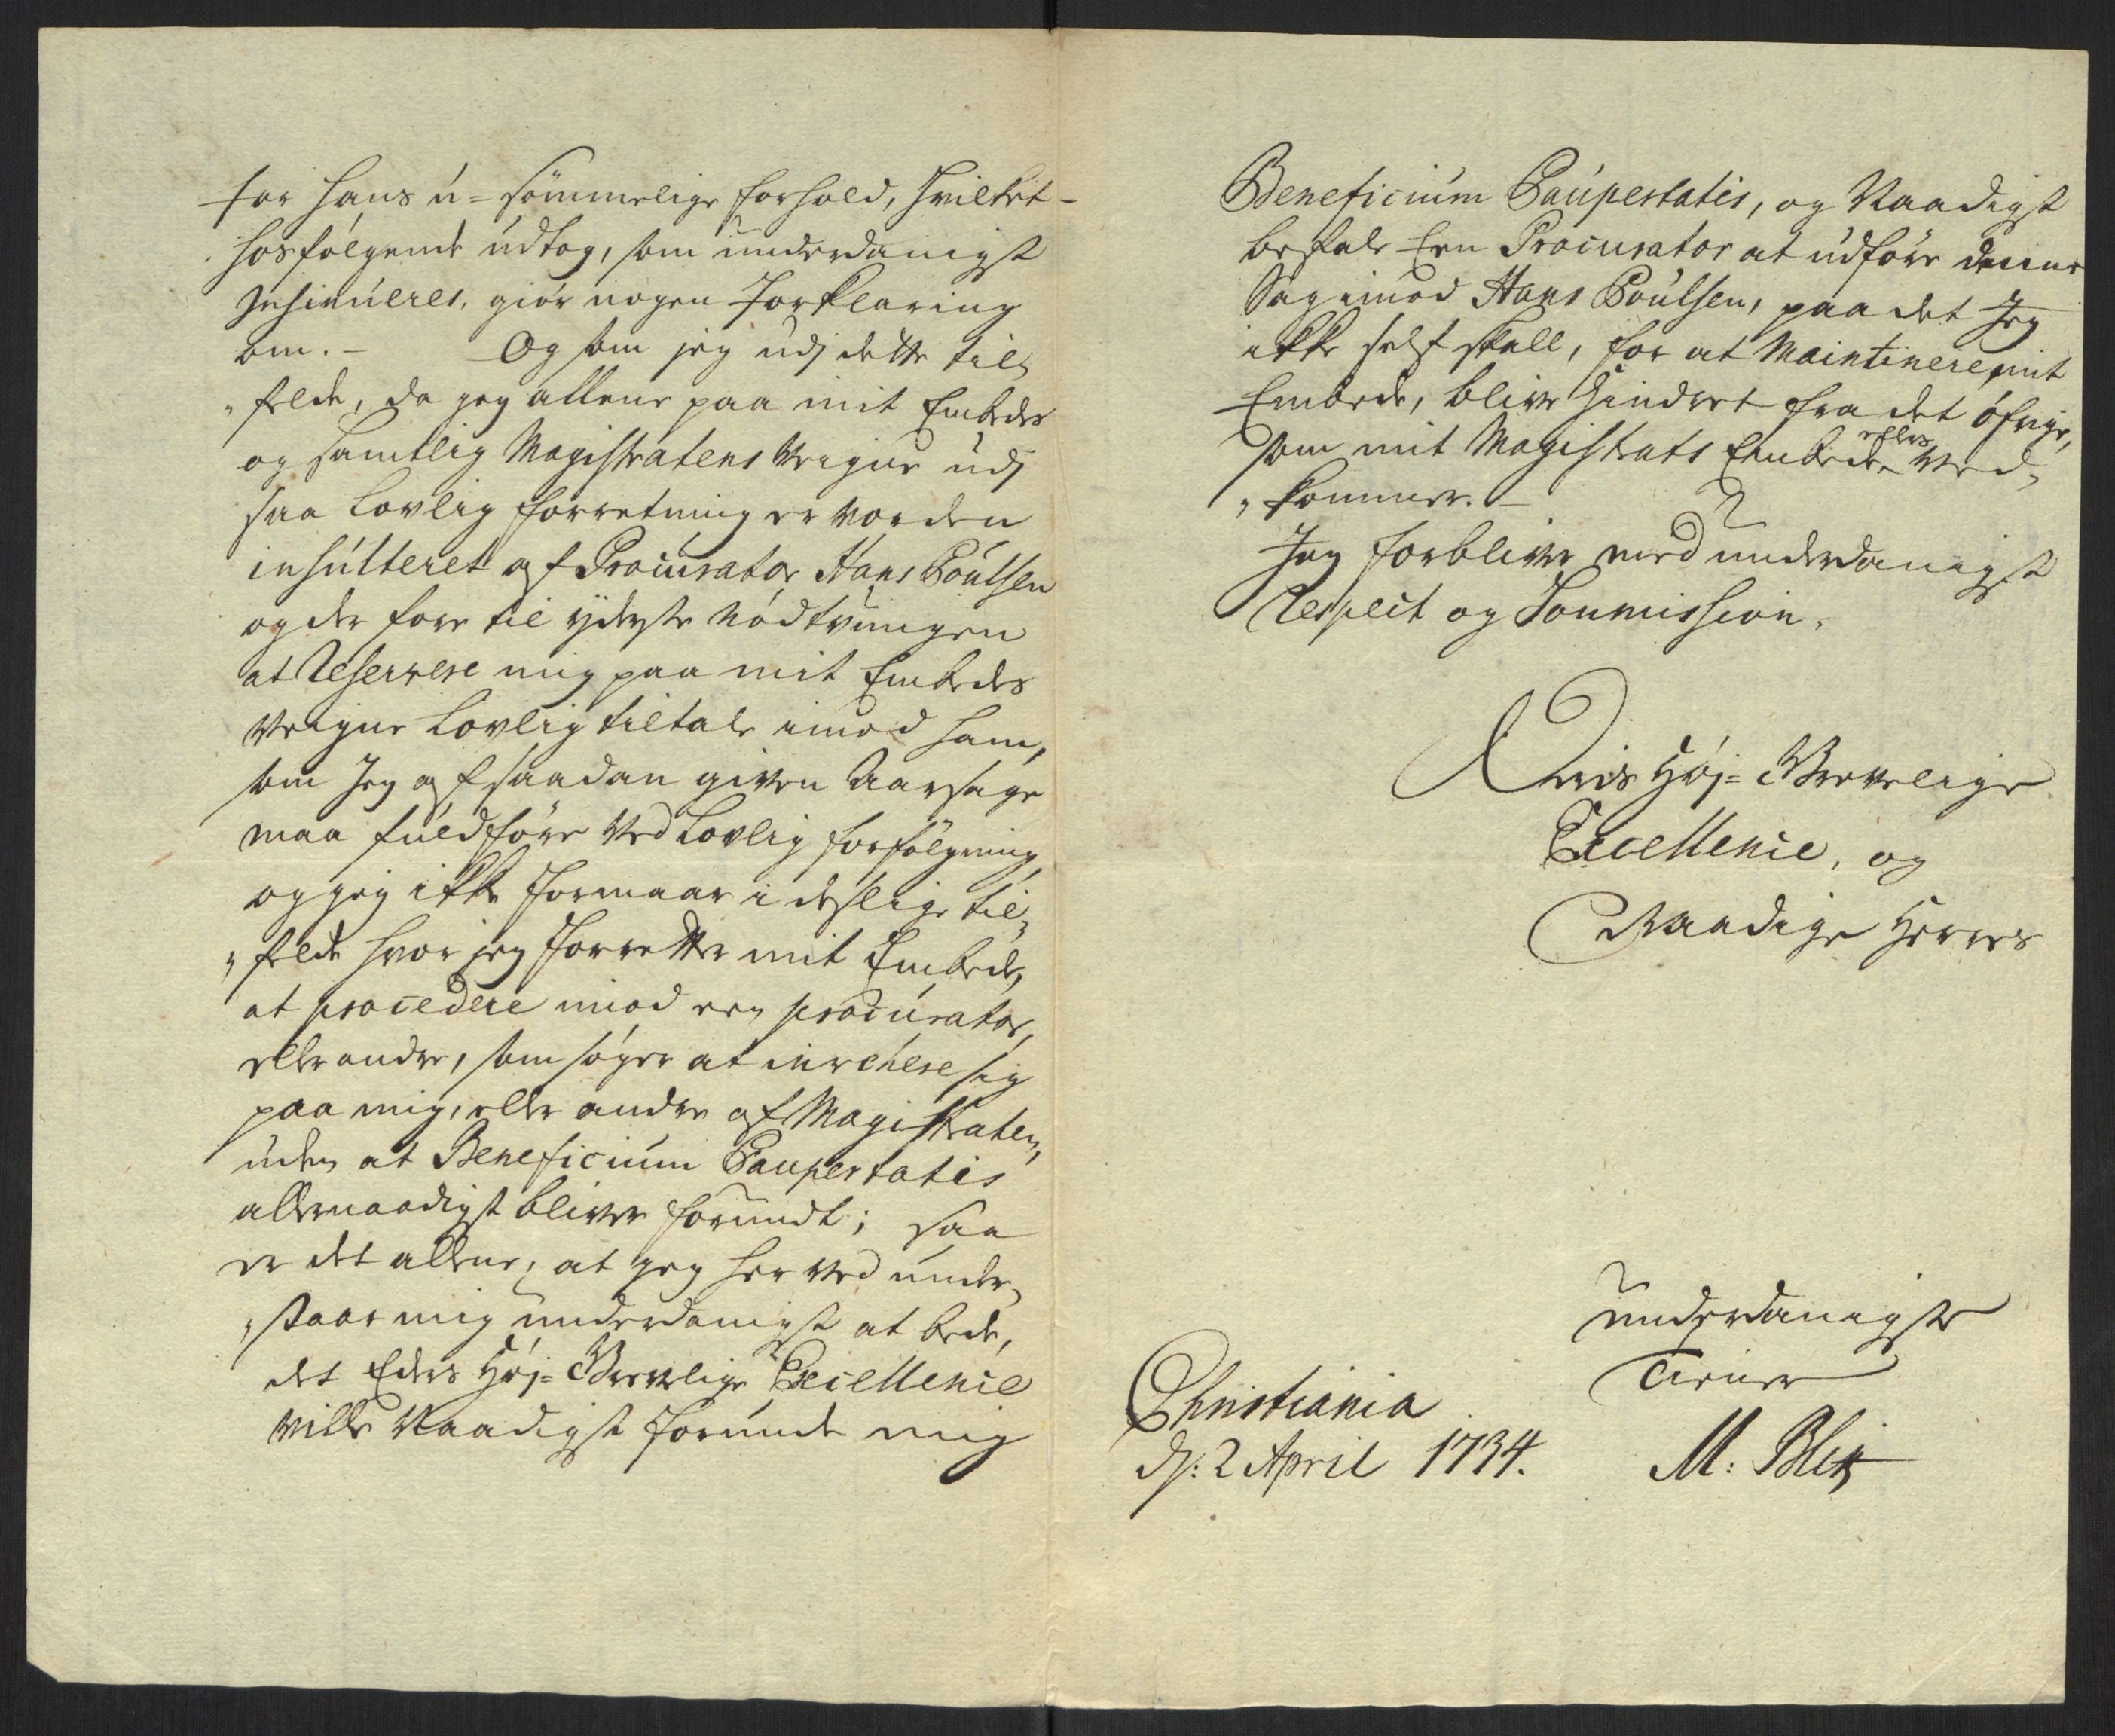 for hans u=sömmelige forhold, hvilket-
hosfölgende udtog, som underdanigst
Insinueres, giör nogen Forklaring
om.- Og som jeg udj dette til,
"felde, da jeg allene paa mit Embedes
og samtlig Magistratens Veigne udj
saa Lovlig forretning er vorden
insulteret af Procurator Hans Poulsen
og der fore til yderste Nödtvungen
at Reservere mig paa mit Embedes
Veigne Lovlig tiltale imod ham,
som Jeg af saadan given Aarsage
maa fuldföre Ved Lovlig forfölgning,
og jeg ikke Formaar i deslige til,
"felde hvor jeg Forretter mit Embede,
at procedere imod een procurator,
eller andre, som söger at invehere sig
paa mig, eller andre af Magistraten,
uden at Beneficium Paupertatis
allernaadigst bliver forundt; saa
er det allene, at jeg her ved under,
"staar mig underdanigst at bede,
det Eders Höj=Grevelige Excellence
ville Naadigst forunde mig
Beneficium Paupertatis, og Naadigst
befale Een Procurator at udföre denne
Sag imod Hans Poulsen, paa det Jeg
ikke self skall, for at Maintinere mit
Embede, blive Hindret fra det öfrige,
som mit Magistrats Embede ellers Ved,
"kommer.-
Jeg forbliver med underdanigst
Respect og Soumission,
Deris Höj=Grevelige
Excellence, og
Naadige Herres
underdanigste
Tiener
Christiania
dj: 2 April 1734.
M: Blix